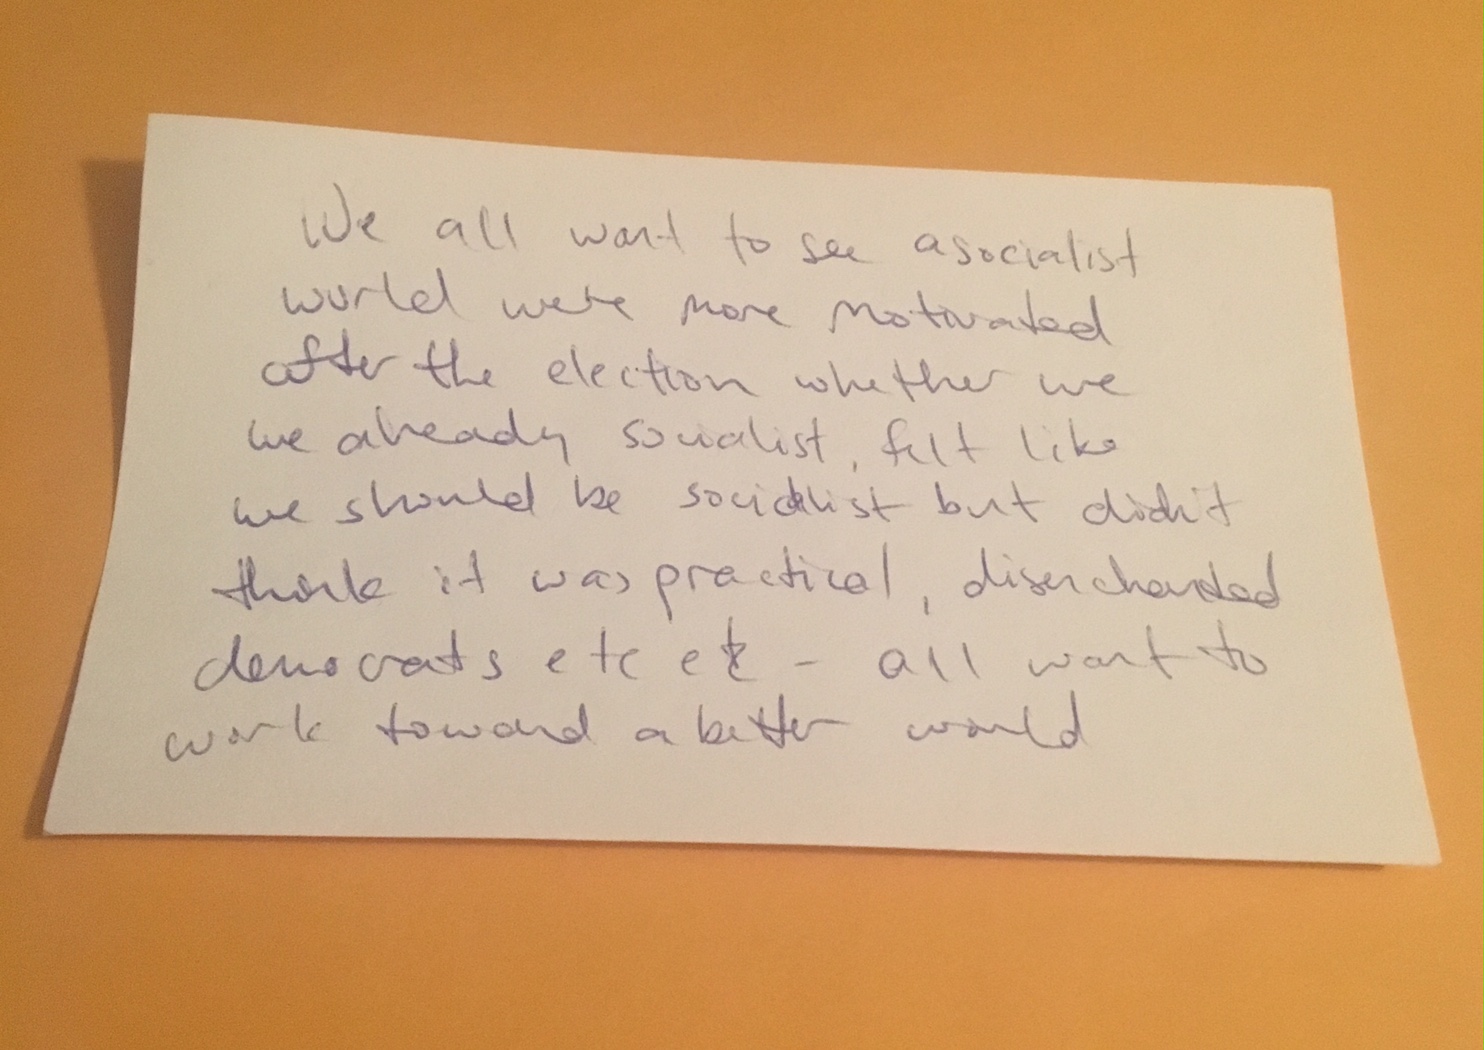 We all want to see a socialist
world we're more motivated
after the election whether we
we already socialist, felt like
we should be socialist but didn't
think it was practical, disenchanted
democrats etc etc - all want to
work toward a better world